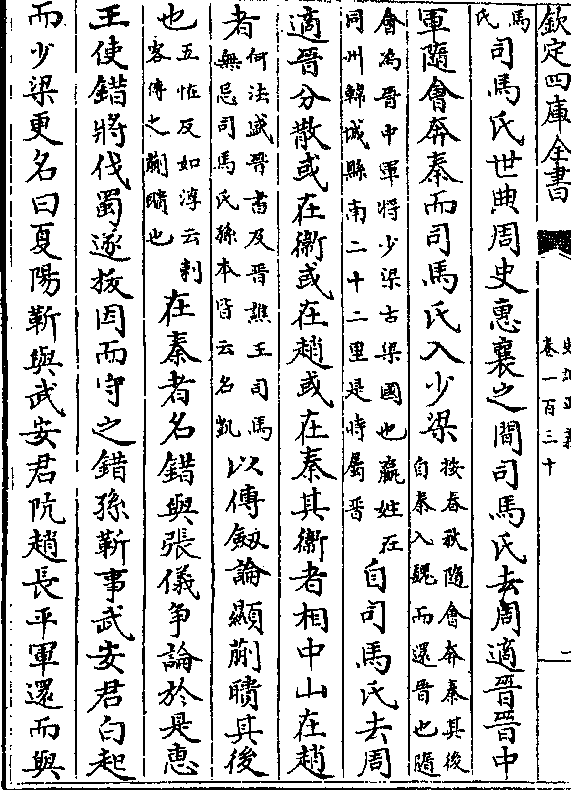 欽定四庫全書
史記正義
卷一百三十
一
馬氏司馬氏世典周史惠襄之間司馬氏去周適晉晉中
軍隨會奔秦而司馬氏入少梁按春秋隨會奔秦其後自秦入魏而還晉也隨
會為晉中軍將少梁古梁國也嬴姓在同州韓城縣南二十二里是時屬晉自司馬氏去周
適晉分散或在衞或在趙或在秦其衞者相中山在趙
者何法盛晉書及晉譙王司馬無忌司馬氏孫本皆云名凱以傳劒論顯蒯聵其後
也五怪反如淳云刺客傳之蒯聵也在秦者名錯與張儀爭論於是惠
王使錯將伐蜀遂拔因而守之錯孫靳事武安君白起
而少梁更名曰夏陽靳與武安君阬趙長平軍還而與